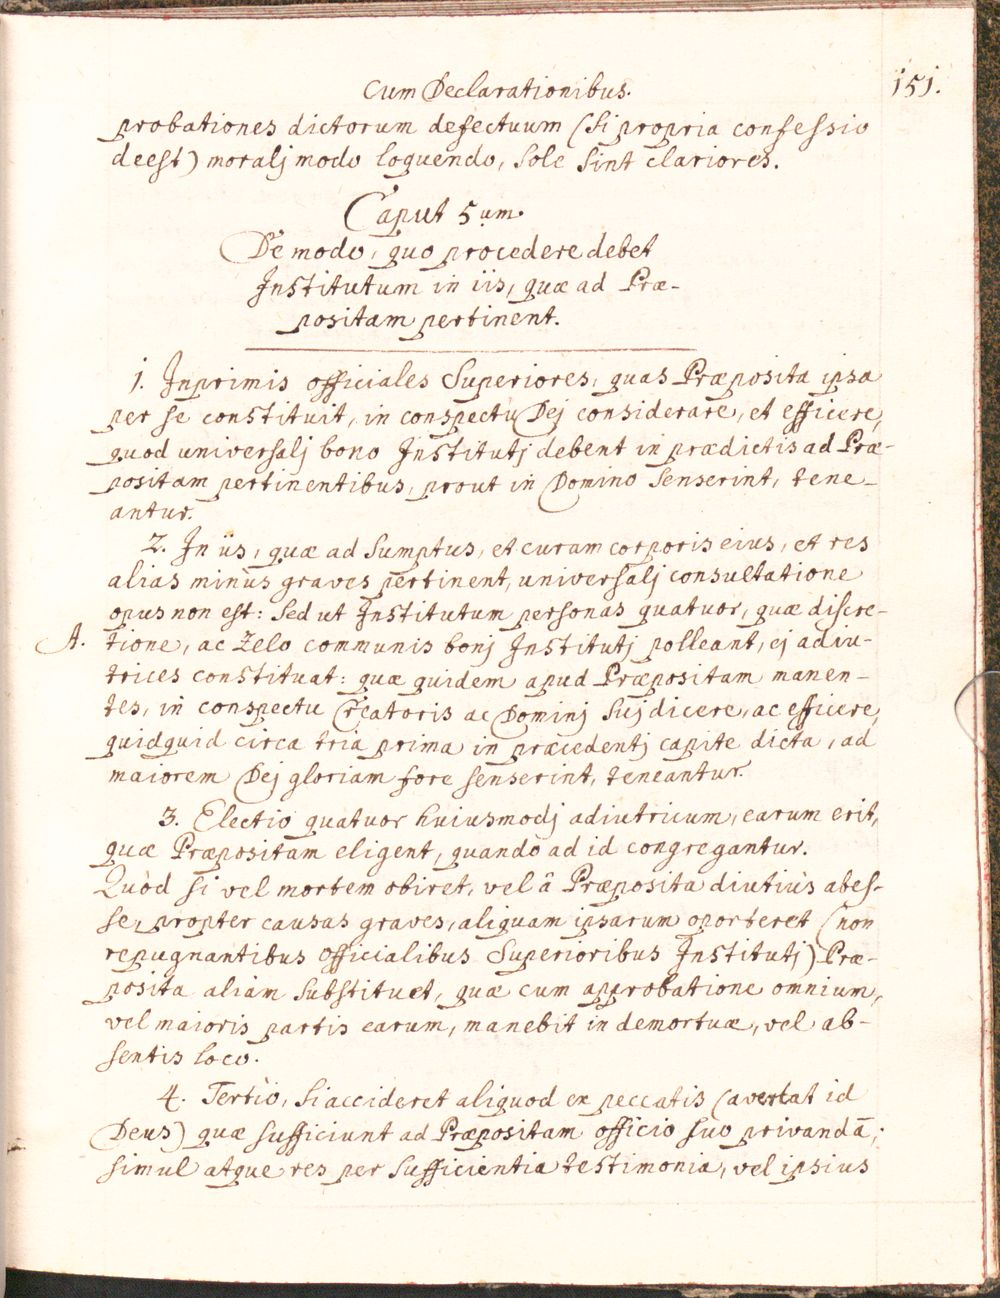 Cum Declarationibus.
151.
probationes dictorum defectuum (si propria confessio
deest) moralj modo loquendo, sole sint clariores.
Caput 5.um.
De modo, quo procedere debet
Institutum in iis, quæ ad Præ-
positam pertinent.
1. Inprimis officiales Superiores, quas Præposita ipsa
per se constituit, in conspectu Dej considerare, et efficere,
quod universalj bono Institutj debent in prædictis ad Præ-
positam pertinentibus, prout in Domino senserint, tene-
antur.
2. In iis, quæ ad sumptus, et curam corporis eius, et res
alias minùs graves pertinent, universalj consultatione
opus non est: sed ut Institutum personas quatuor, quæ discre-
A. tione, ac zelo communis bonj Institutj polleant, ej adiu-
trices constituat: quæ quidem apud Præpositam manen-
tes, in conspectu Creatoris ac Dominj Suj dicere, ac efficere,
quidquid circa tria prima in præcedentj capite dicta, ad
maiorem Dej gloriam fore senserint, teneantur.
3. Electio quatuor huiusmodj adiutricum, earum erit,
quæ Præpositam eligent, quando ad id congregantur.
Quòd si vel mortem obiret, vel â Præposita diutiùs abes-
se, propter causas graves, aliquam ipsarum oporteret (non
repugnantibus officialibus Superioribus Institutj) Præ-
posita aliam substituet, quæ cum approbatione omnium,
vel maioris partis earum, manebit in demortuæ, vel ab-
sentis loco.
4. Tertiò, si accideret aliquod ex peccatis (avertat id
Deus) quæ sufficiunt ad Præpositam officio suo privandā;
simul atque res per sufficientia testimonia, vel ipsius